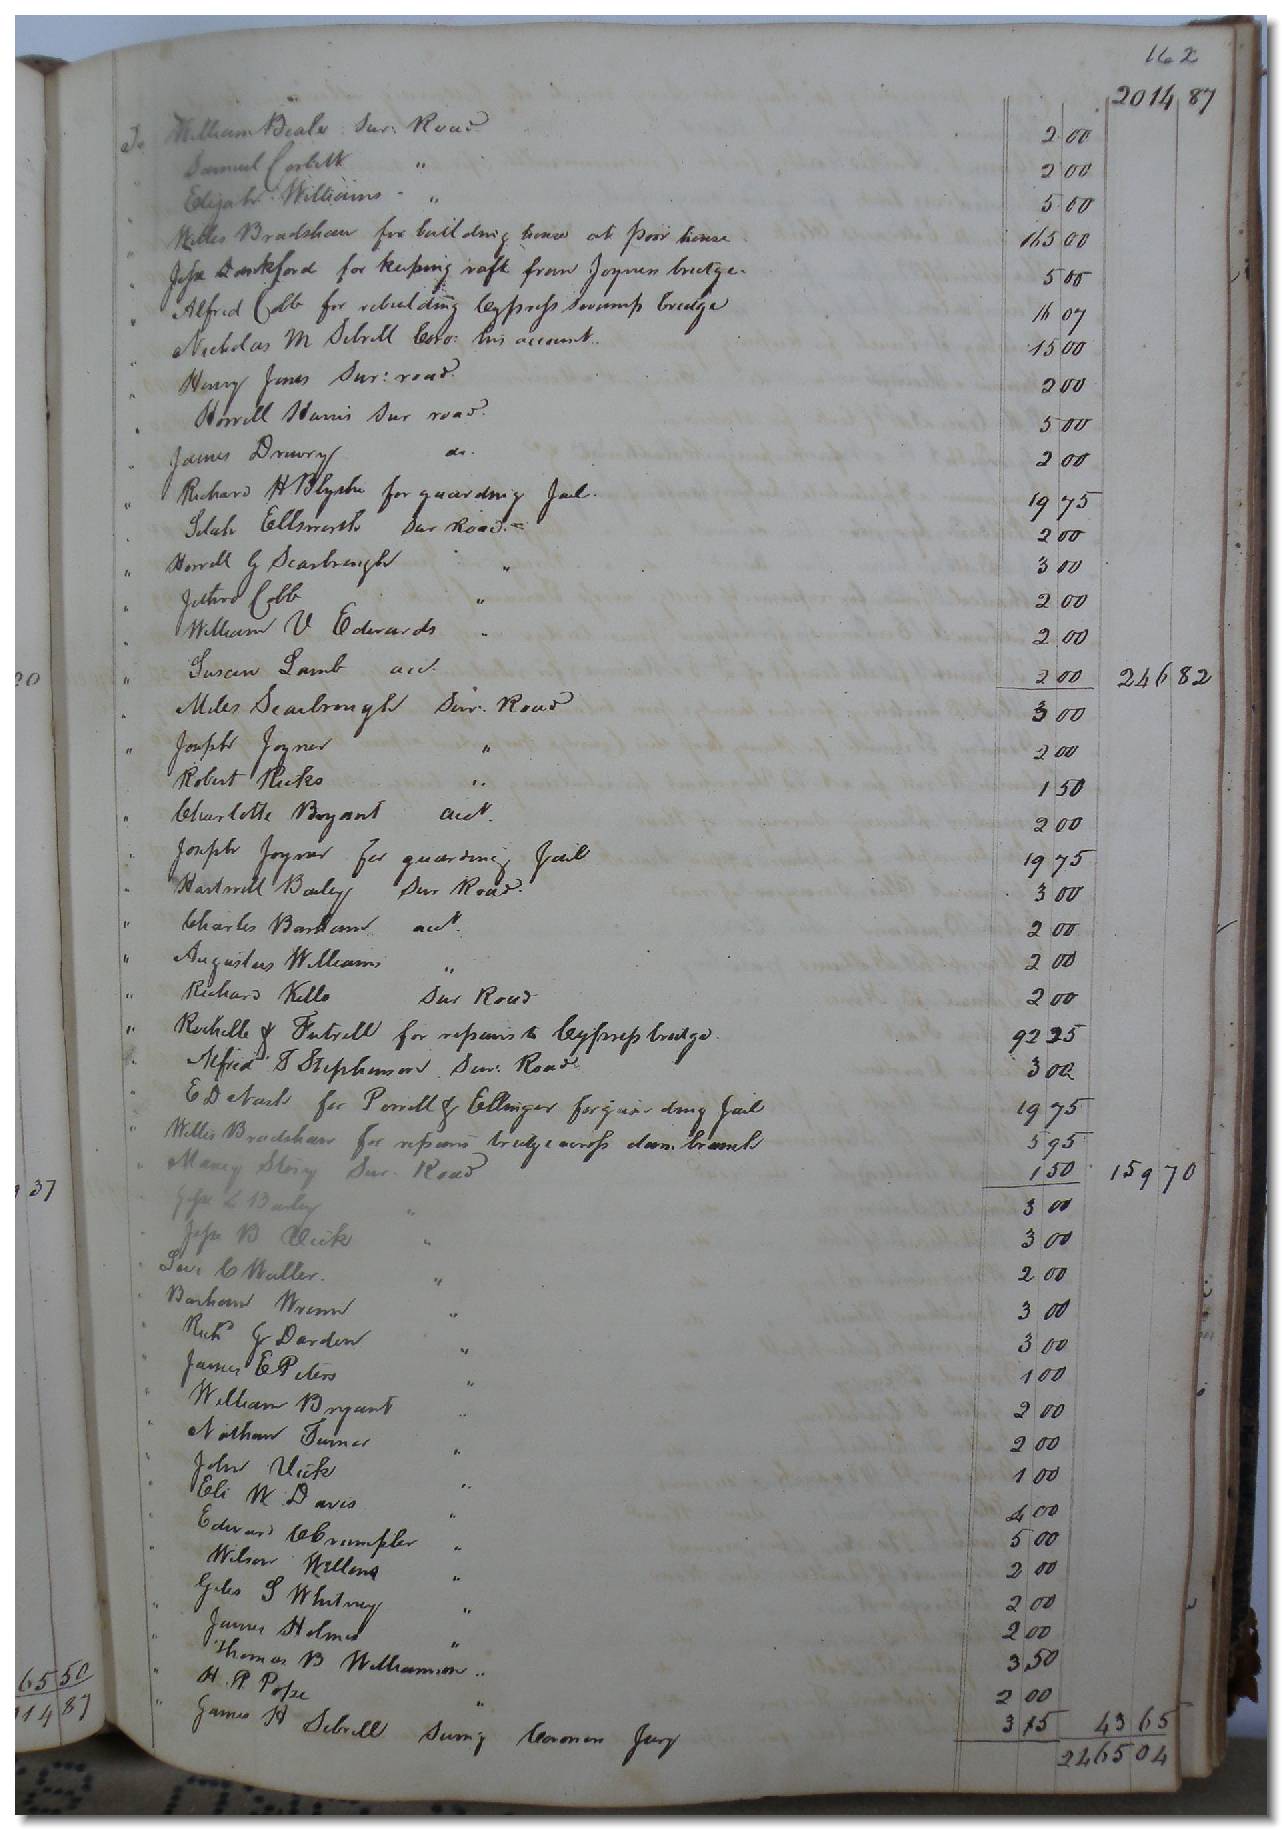 162
2014 87
To William Beale Sur: Road 2 00
" Samuel Corbitt " 2 00
" Elijah Williams " 5 00
" Willis Bradshaw for building house at poor house 165 00
" Jesse Lankford for keeping raft from Joyners bridge 5 00
" Alfred Cobb for rebuilding Cypress swamp bridge 16 07
" Nicholas M Sebrell Coro: his account 15 00
" Henry Jones Sur: road 2 00
" Howell Harris Sur road 5 00
" James Drewry do. 2 00
" Richard H Blythe for guarding Jail 19 75
" Ellsworth Sur Road 2 00
" Howell G Scarbrough " 3 00
" Jethro Cobb " 2 00
" William V Edwards " 2 00
" Susan Lamb acct 2 00 246 82
" Miles Scarbrough Sur. Road 3 00
" Joseph Joyner " 2 00
" Robert Ricks " 1 50
" Charlotte Bryant acct. 2 00
" Joseph Joyner for guarding Jail 19 75
" Hartwell Bailey Sur Road 3 00
" Charles Barham acct. 2 00
" Augustus Williams " 2 00
" Richard Kello Sur Road 2 00
" Rochelle & Futrell for repairs to Cypress bridge 92 25
" Alfred T Stephenson Sur. Road 3 00
" E D Nash for Powell & Ellinger for guarding Jail 19 75
" Willis Bradshaw for repairs bridge across dam branch 5 95
" Story Sur. Road 1 50 159 70
" Jesse L Bailey " 3 00
" Jesse B Vick " 3 00
" C Waller. " 2 00
" Barham Wrenn " 3 00
" Richd G Darden " 3 00
" James E Peters " 1 00
" William Bryant " 2 00
" Nathan Turner " 2 00
" John Vick " 1 00
" Eli W Davis " 4 00
" Edward C Crumpler " 5 00
" Wilson " 2 00
" Giles S Whitney " 2 00
" James Holmes " 2 00
" Thomas B Williamson " 3 50
" H. P Pope " 2 00
" James H Sebrell Sumg Coroners Jury 3 15 43 65
2465 04
20
37
65 50
14 87